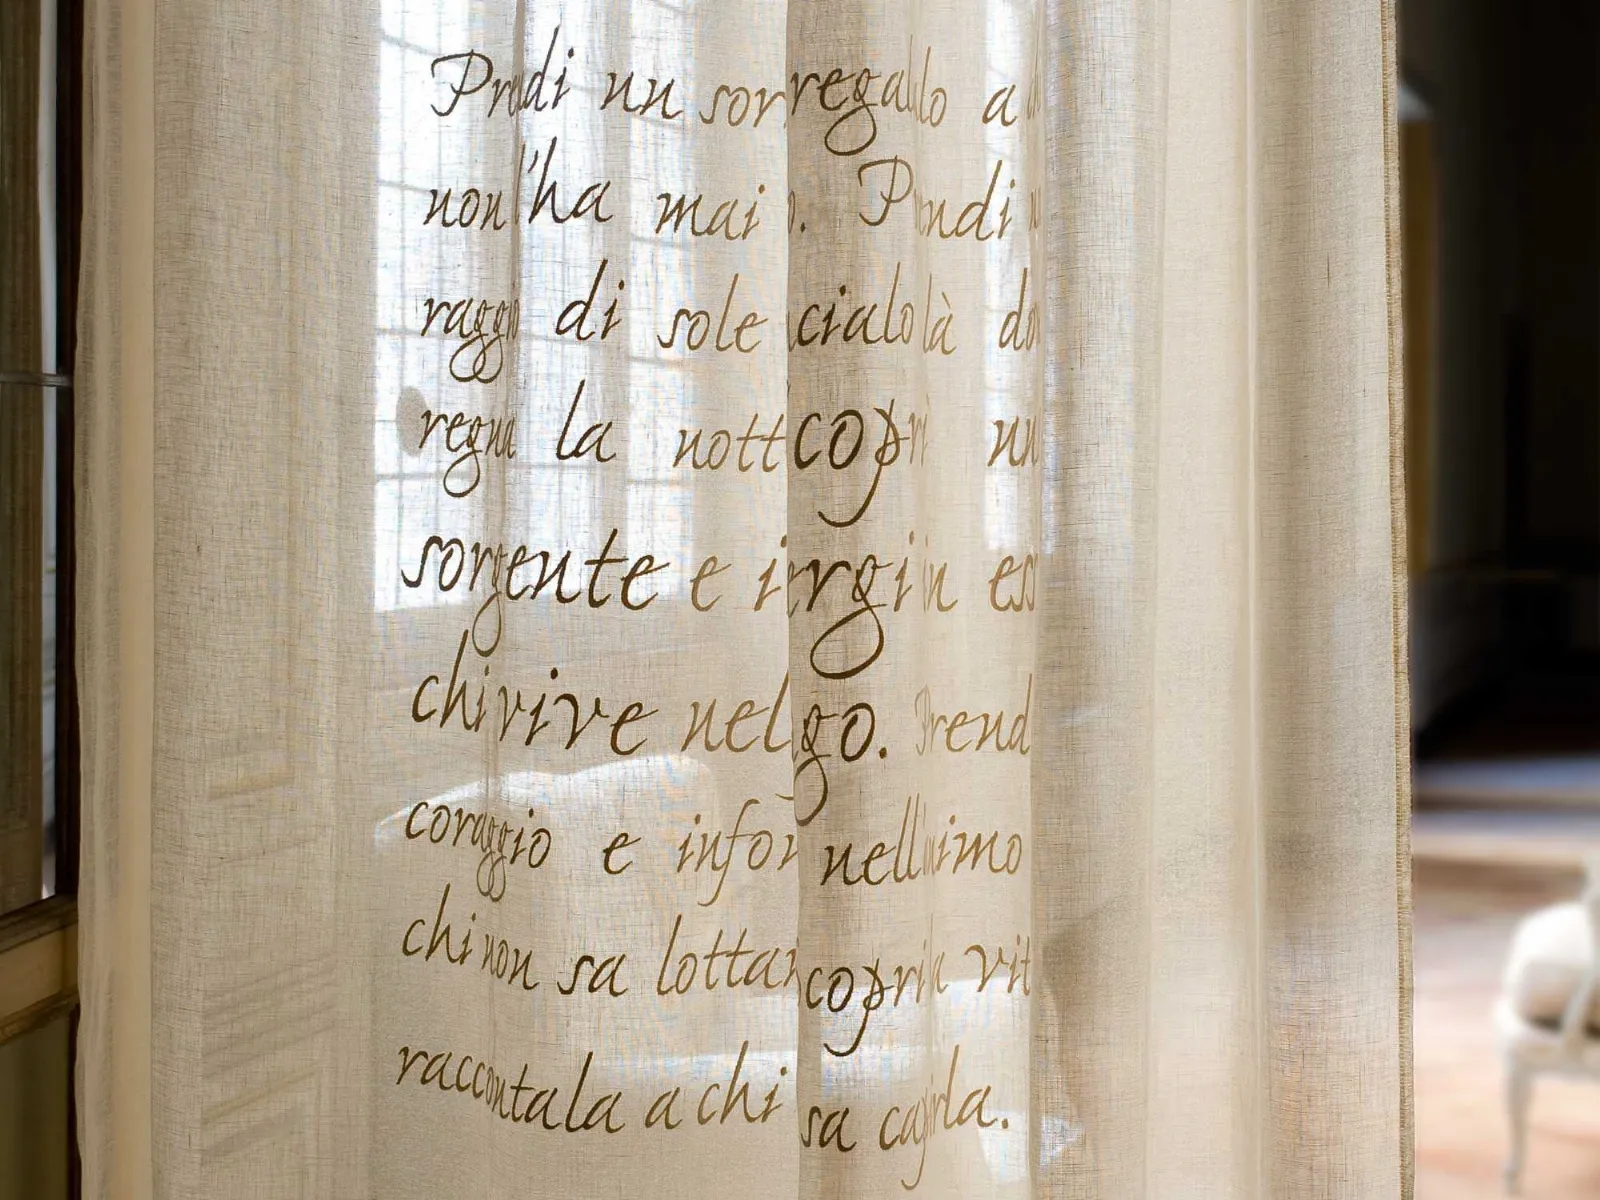 Prendi un sorriso regalalo a
non l'ha mai Prendi
raggio di sole lascialo là do
regna la notte Scopri un
sorgente e immergi in ess
chi vive nel fango. Prend
coraggio e infor nell'animo
chi non sa lottar Scopri la vit
raccontala a chi sa capirla.